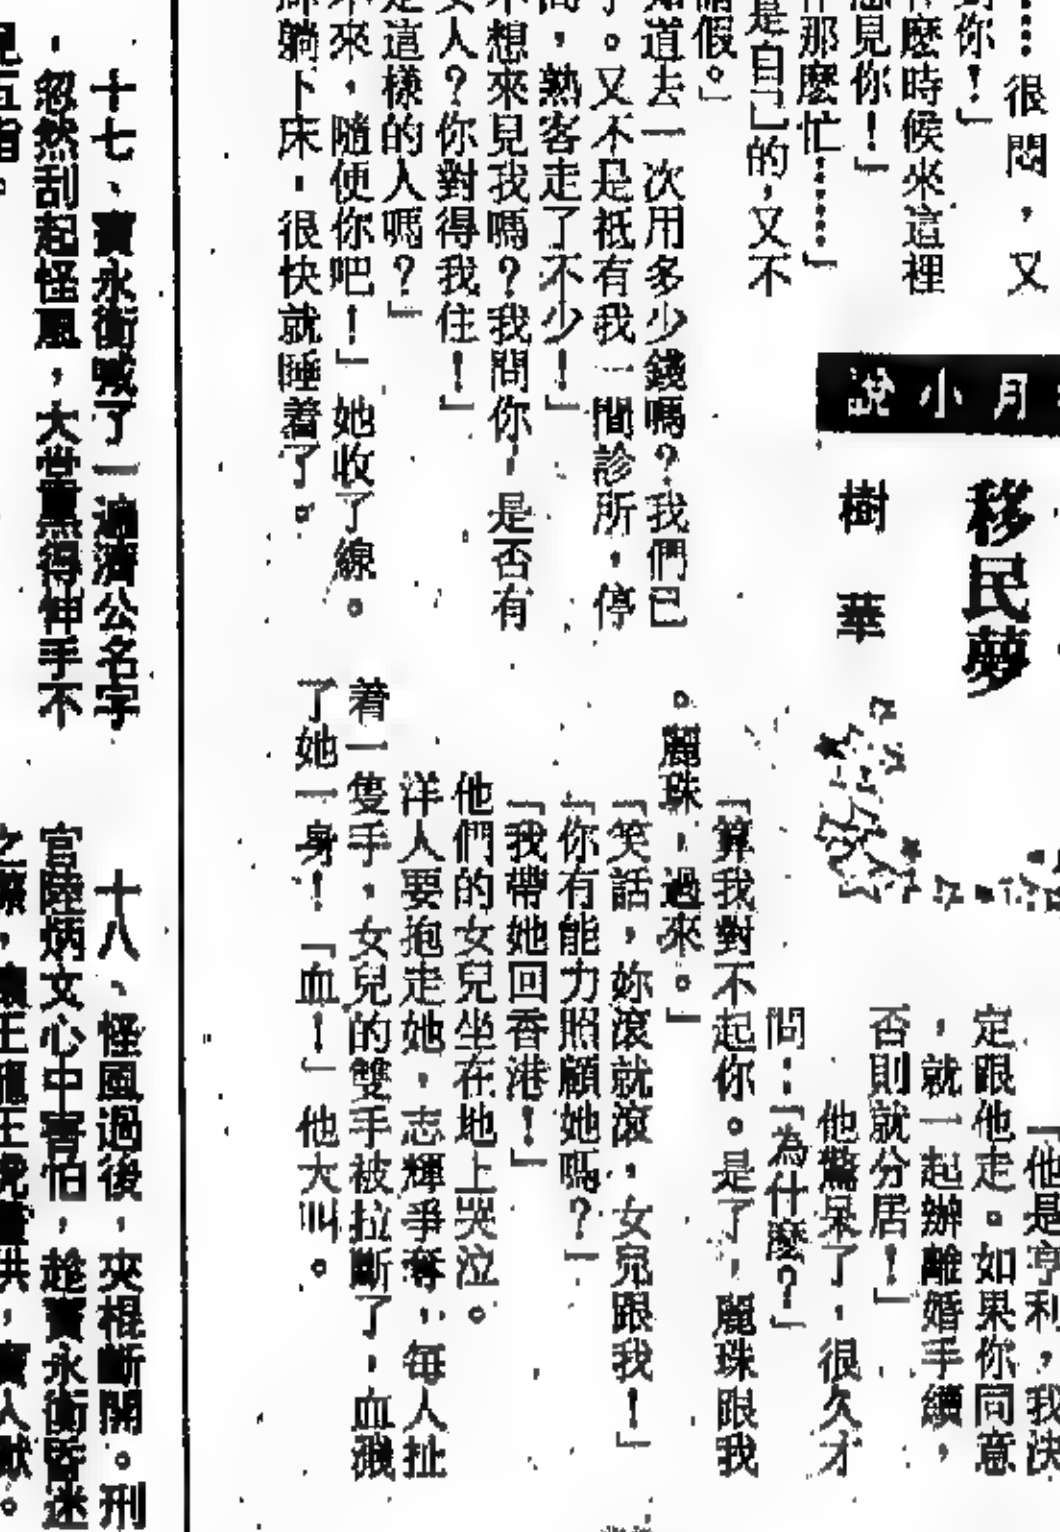 ……很悶，又
到你！」
什麼時候來這裡
想見你！」
作那麼忙……」
是自己的，又不
請假。」
知道去一次用多少錢嗎？我們已
了。又不是祇有我一間診所，停
間，熟客走了不少！」
不想來見我嗎？我問你，是否有
女人？你對得我住！」
是這樣的人嗎？」
不來，隨便你吧！」她收了線。
即躺下床，很快就睡着了。
月小說
移民夢
樹華
「他是亨利，我決
定跟他走。如果你同意
，就一起辦離婚手續，
否則就分居！」
他驚呆了，很久才
問：「為什麼？」
「算我對不起你。是了，麗珠跟我
。麗珠，過來。」
「笑話，妳滾就滾，女兒跟我！」
「你有能力照顧她嗎？」
「我帶她回香港！」
他們的女兒坐在地上哭泣。
洋人要抱走她，志輝爭奪，每人扯
着一隻手，女兒的雙手被拉斷了，血濺
了她一身！「血！」他大叫。
十七、竇永衡喊了一遍濟公名字
，忽然刮起怪風，大堂黑得伸手不
見五指。
十八、怪風過後，夾棍斷開。刑
官陸炳文心中害怕，趁竇永衡昏迷